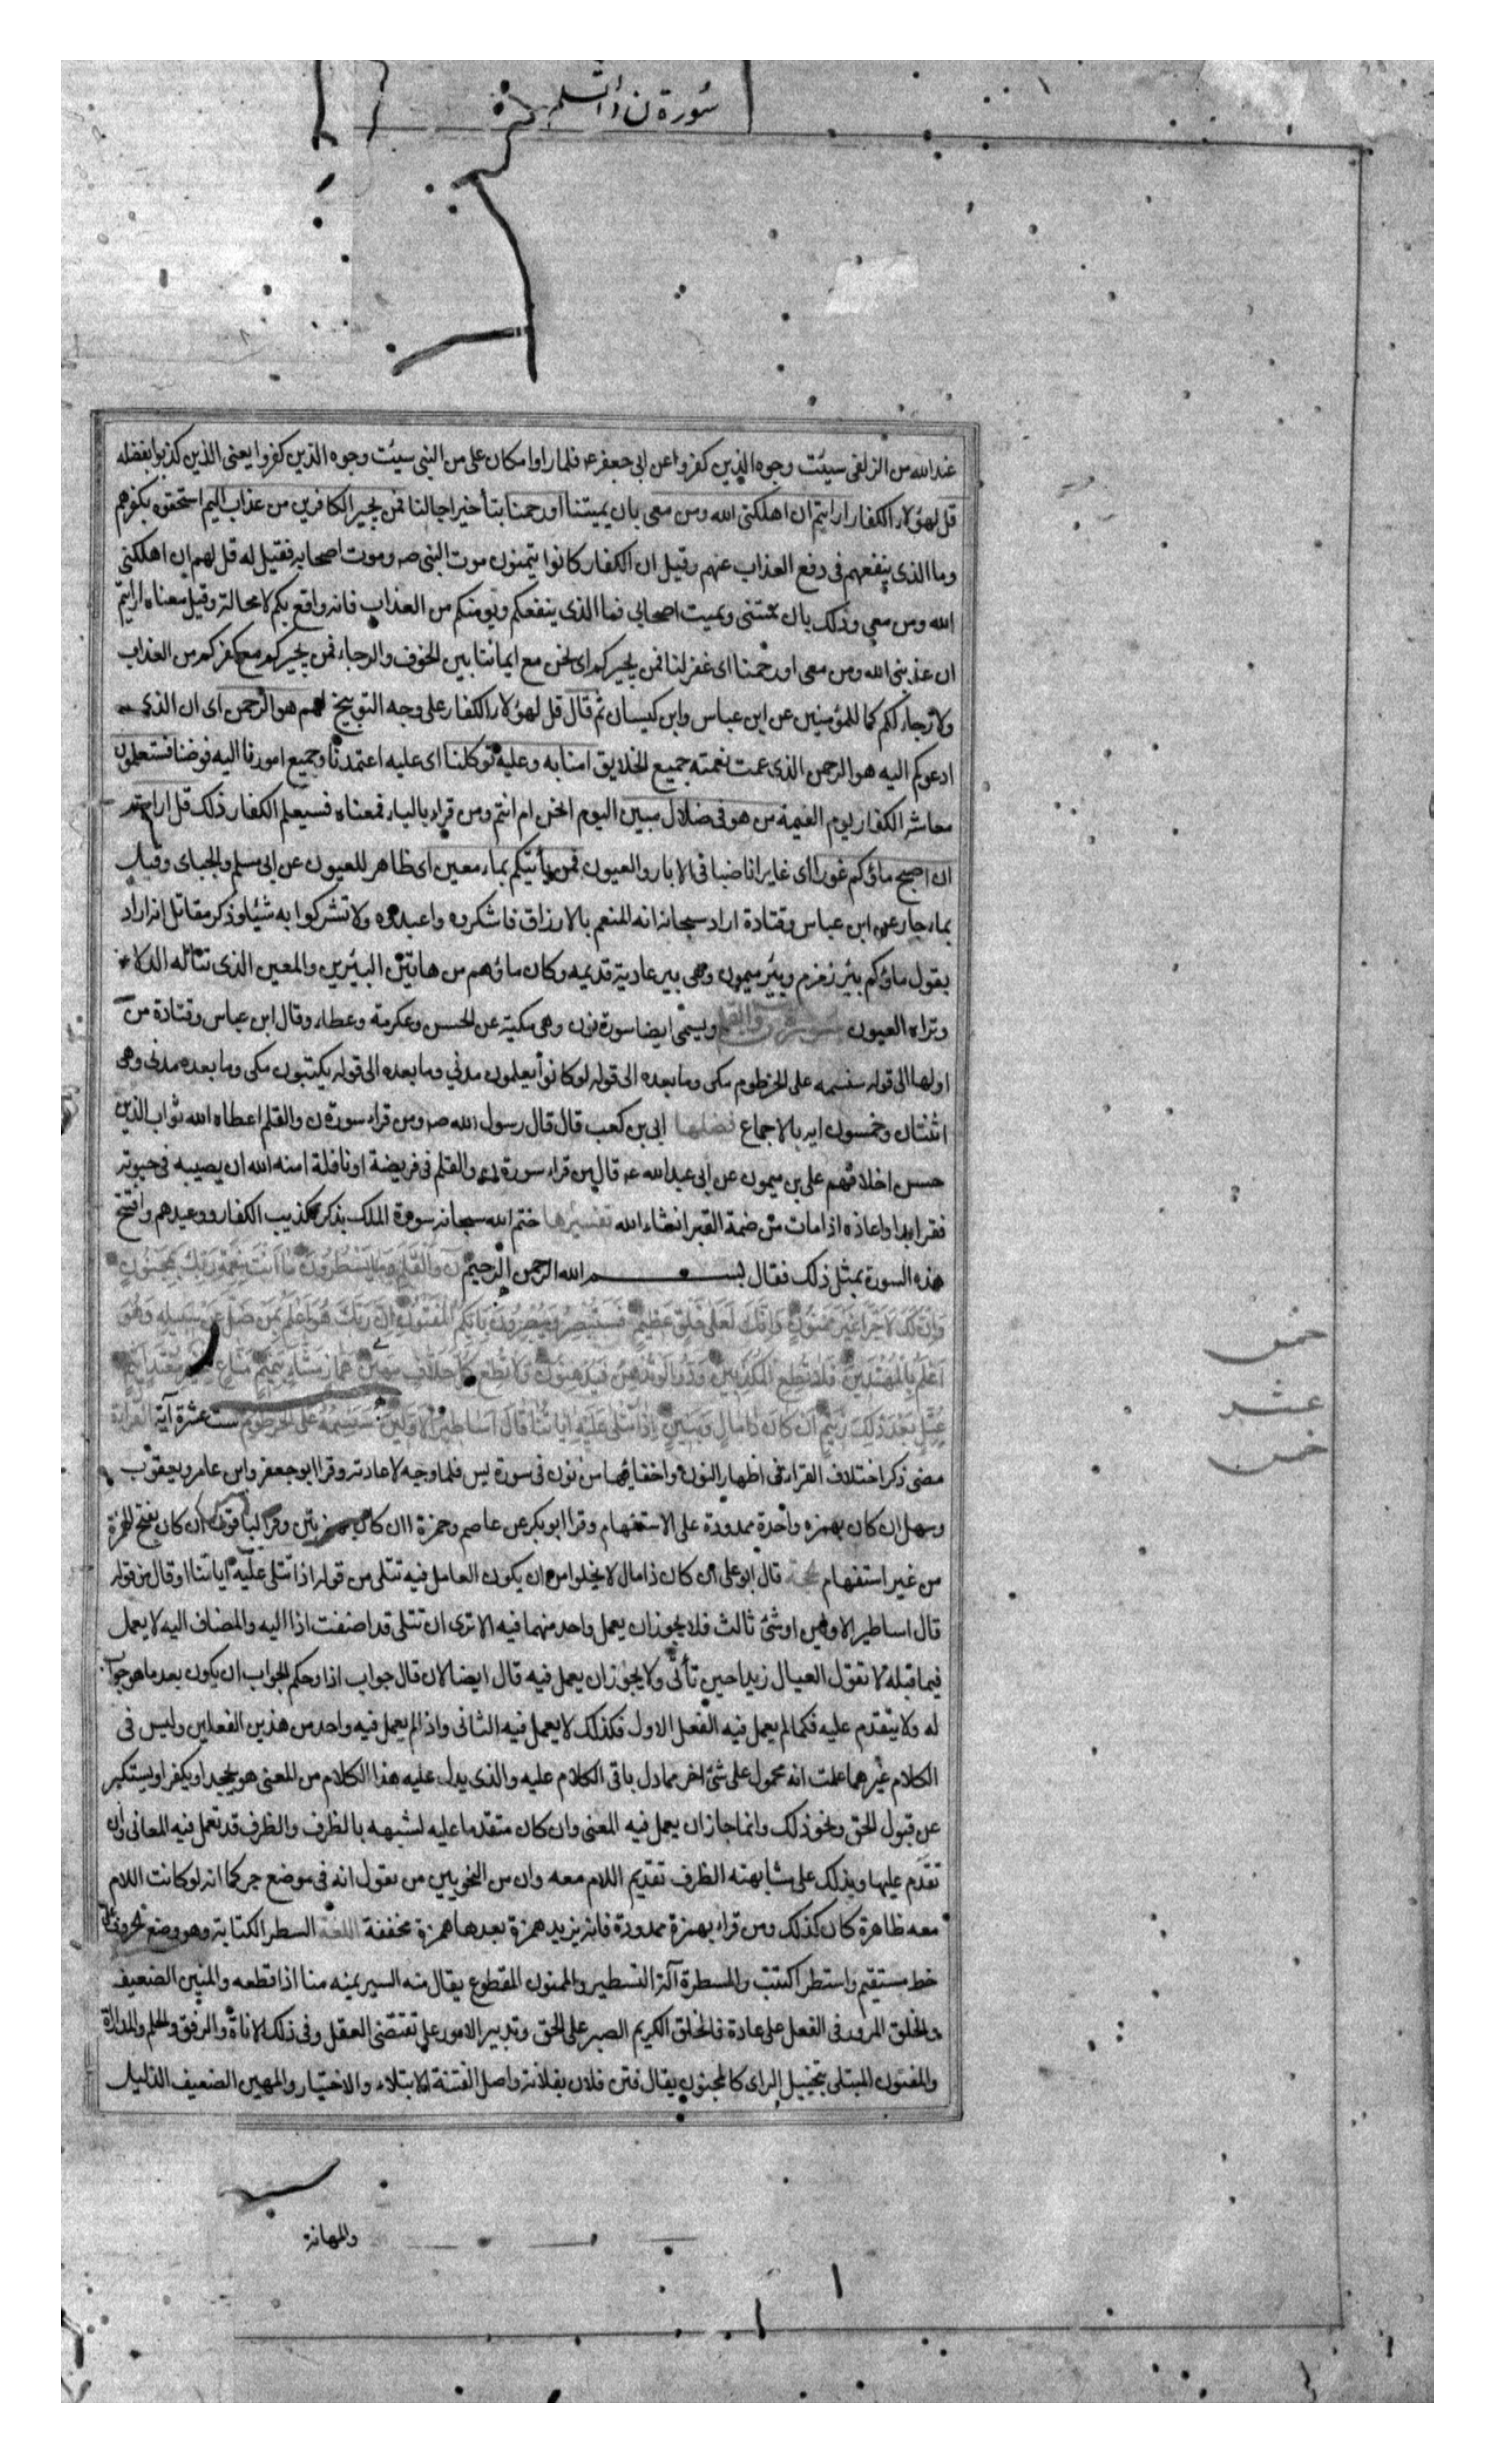 سورة ن والقلم
عند الله من الزلفى سيئت وجوه الذين كفروا عن ابى جعفر ع فلما راوا مكان على من النبى سيئت وجوه الذين كفروا يعنى الذين كذبوا بفضله
قل لهؤلاء الكفار ارايتم ان اهلكنى الله ومن معى بان يميتنا اورحمنا بتأخير اجالنا فمن يجير الكافرين من عذاب اليم استحقوه بكفرهم
وما الذى ينفعهم فى دفع العذاب عنهم وقيل ان الكفار كانوا يتمنون موت النبى ص وموت اصحابه فقيل له قل لهم ان اهلكنى
الله ومن معى وذلك بان يميتنى ويميت اصحابى فما الذى ينفعكم ويومنكم من العذاب فانه واقع بكم لا محالة وقيل معناه ارايتم
ان عذبنى الله ومن معى اورحمنا اى غفر لنا فمن يجيركم اى نحن مع ايماننا بين الخوف والرجاء فمن يجيركم مع كفركم من العذاب
ولا رجاء لكم كما للمؤمنين عن ابن عباس وابن كيسان ثم قال قل لهؤلاء الكفار على وجه التوبيخ لهم هو الرحمن اى ان الذى
ادعوكم اليه هو الرحمن الذى عمت نعمته جميع الخلايق امنا به وعليه توكلنا اى عليه اعتمدنا وجميع امورنا اليه فوضنا فستعلمون
معاشر الكفار يوم القيمة من هو فى ضلال مبين اليوم انحن ام انتم ومن قراء بالياء فمعناه فسيعلم الكفار ذلك قل ارايتم
ان اصبح ماؤكم غورا اى غايرا ناضبا فى الابار والعيون فمن يأتيكم بماء معين اى ظاهر للعيون عن ابى مسلم والجباى وقيل
بماء جار عن ابن عباس وقتادة اراد سبحانه انه المنعم بالارزاق فاشكروه واعبدوه ولا تشركوا به شيئا وذكر مقاتل انه اراد
بقوله ماؤكم بئر زمزم وبئر ميمون وهى بير عادية قديمه وكان ماؤهم من هاتين البئرين والمعين الذى تناله الدلاء
وتراه العيون سورة ن والقلم ويسمى ايضا سورة نون وهى مكية عن الحسن وعكرمة وعطاء وقال ابن عباس وقتادة من
اولها الى قوله سنسمه على الخرطوم مكى وما بعده الى قوله لو كانوا يعلمون مدني وما بعده الى قوله يكتبون مكى وما بعده مدنى وهى
اثنتان وخمسون ايه بالاجماع فضلها ابى بن كعب قال قال رسول الله ص ومن قراء سورة ن والقلم اعطاه الله ثواب الذين
حسن اخلاقهم على بن ميمون عن ابى عبد الله ع قال من قراء سورة ن والقلم فى فريضة او نافلة امنه الله ان يصيبه فى حيوته
فقر ابدا واعاذه اذا مات من ضمة القبر انشاء الله تفسيرها ختم الله سبحانه سورة الملك بذكر تكذيب الكفار ووعيدهم وافتتح
هذه السورة بمثل ذلك فقال بسم الله الرحمن الرحيم ن والقلم وما يسطرون ما انت بنعمة ربك بمجنون
وان لك لاجرا غير ممنون وانك لعلى خلق عظيم فستبصر ويبصرون بايكم المفتون ان ربك هو اعلم بمن ضل عن سبيله وهو
خمس
اعلم بالمهتدين فلا تطع المكذبين ودوا لو تدهن فيدهنون ولا تطع كل حلاف مهين هماز مشاء بنميم مناع للخير معتد اثيم
عشر
عتل بعد ذلك زنيم ان كان ذا مال وبنين اذا تتلى عليه اياتنا قال اساطير الاولين سنسمه على الخرطوم ست عشرة آية القراءة
خمس
مضى ذكر اختلاف القراء فى اظهار النون واخفائها من نون فى سورة يس فلما وجه لاعادته وقرا ابو جعفر وابن عامر ويعقوب
وسهل ان كان بهمزه واحدة ممدودة على الاستفهام وقرا ابو بكر عن عاصم وحمزة اان كان بهمزتين وقرا الباقون ان كان بفتح الهمزة
من غير استفهام حجة قال ابو على ان كان ذا مال لا يخلوا من ان يكون العامل فيه تتلى من قوله اذا تتلى عليه اياتنا او قال من قوله
قال اساطير الاولين او شئ ثالث فلا يجوز ان يعمل واحد منهما فيه الا ترى ان تتلى قد اضفت اذا اليه والمضاف اليه لا يعمل
فيما قبله لا تقول العيال زيدا حين تأتى ولا يجوز ان يعمل فيه قال ايضا لان قال جواب اذا وحكم الجواب ان يكون بعد ما هو جواب
له ولا يتقدم عليه فكما لم يعمل فيه الفعل الاول فكذلك لا يعمل فيه الثانى واذا لم يعمل فيه واحد من هذين الفعلين وليس فى
الكلام غيرهما علمت انه محمول على شئ اخر مما دل باقى الكلام عليه والذى يدل عليه هذا الكلام من المعنى هو يجحد او يكفر او يستكبر
عن قبول الحق ونحو ذلك وانما جاز ان يعمل فيه المعنى وان كان متقدما عليه لشبهه بالظرف والظرف قد تعمل فيه المعانى وان
تقدم عليها ويدلك على مشابهته الظرف تقديم اللام معه وان من النحويين من يقول انه فى موضع جر كما انه لو كانت اللام
معه ظاهرة كان كذلك ومن قراء بهمزة ممدودة فانه يزيد همزة بعدها همزة مخففة اللغة السطر الكتابة وهو وضع الحروف على
خط مستقيم واستطر اكتتب والمسطرة آلة التسطير والممنون المقطوع يقال منه السير يمنه منا اذا قطعه والمنين الضعيف
والخلق المرور فى الفعل على عادة فالخلق الكريم الصبر على الحق وتدبير الامور على تقتضى العقل وفى ذلك الاناة والرفق والحلم والمداراة
والمفتون المبتلى بتخييل الراى كالمجنون يقال فتن فلان بفلانة واصل الفتنة الابتلاء والاختيار والمهين الضعيف الذليل
والمهانة